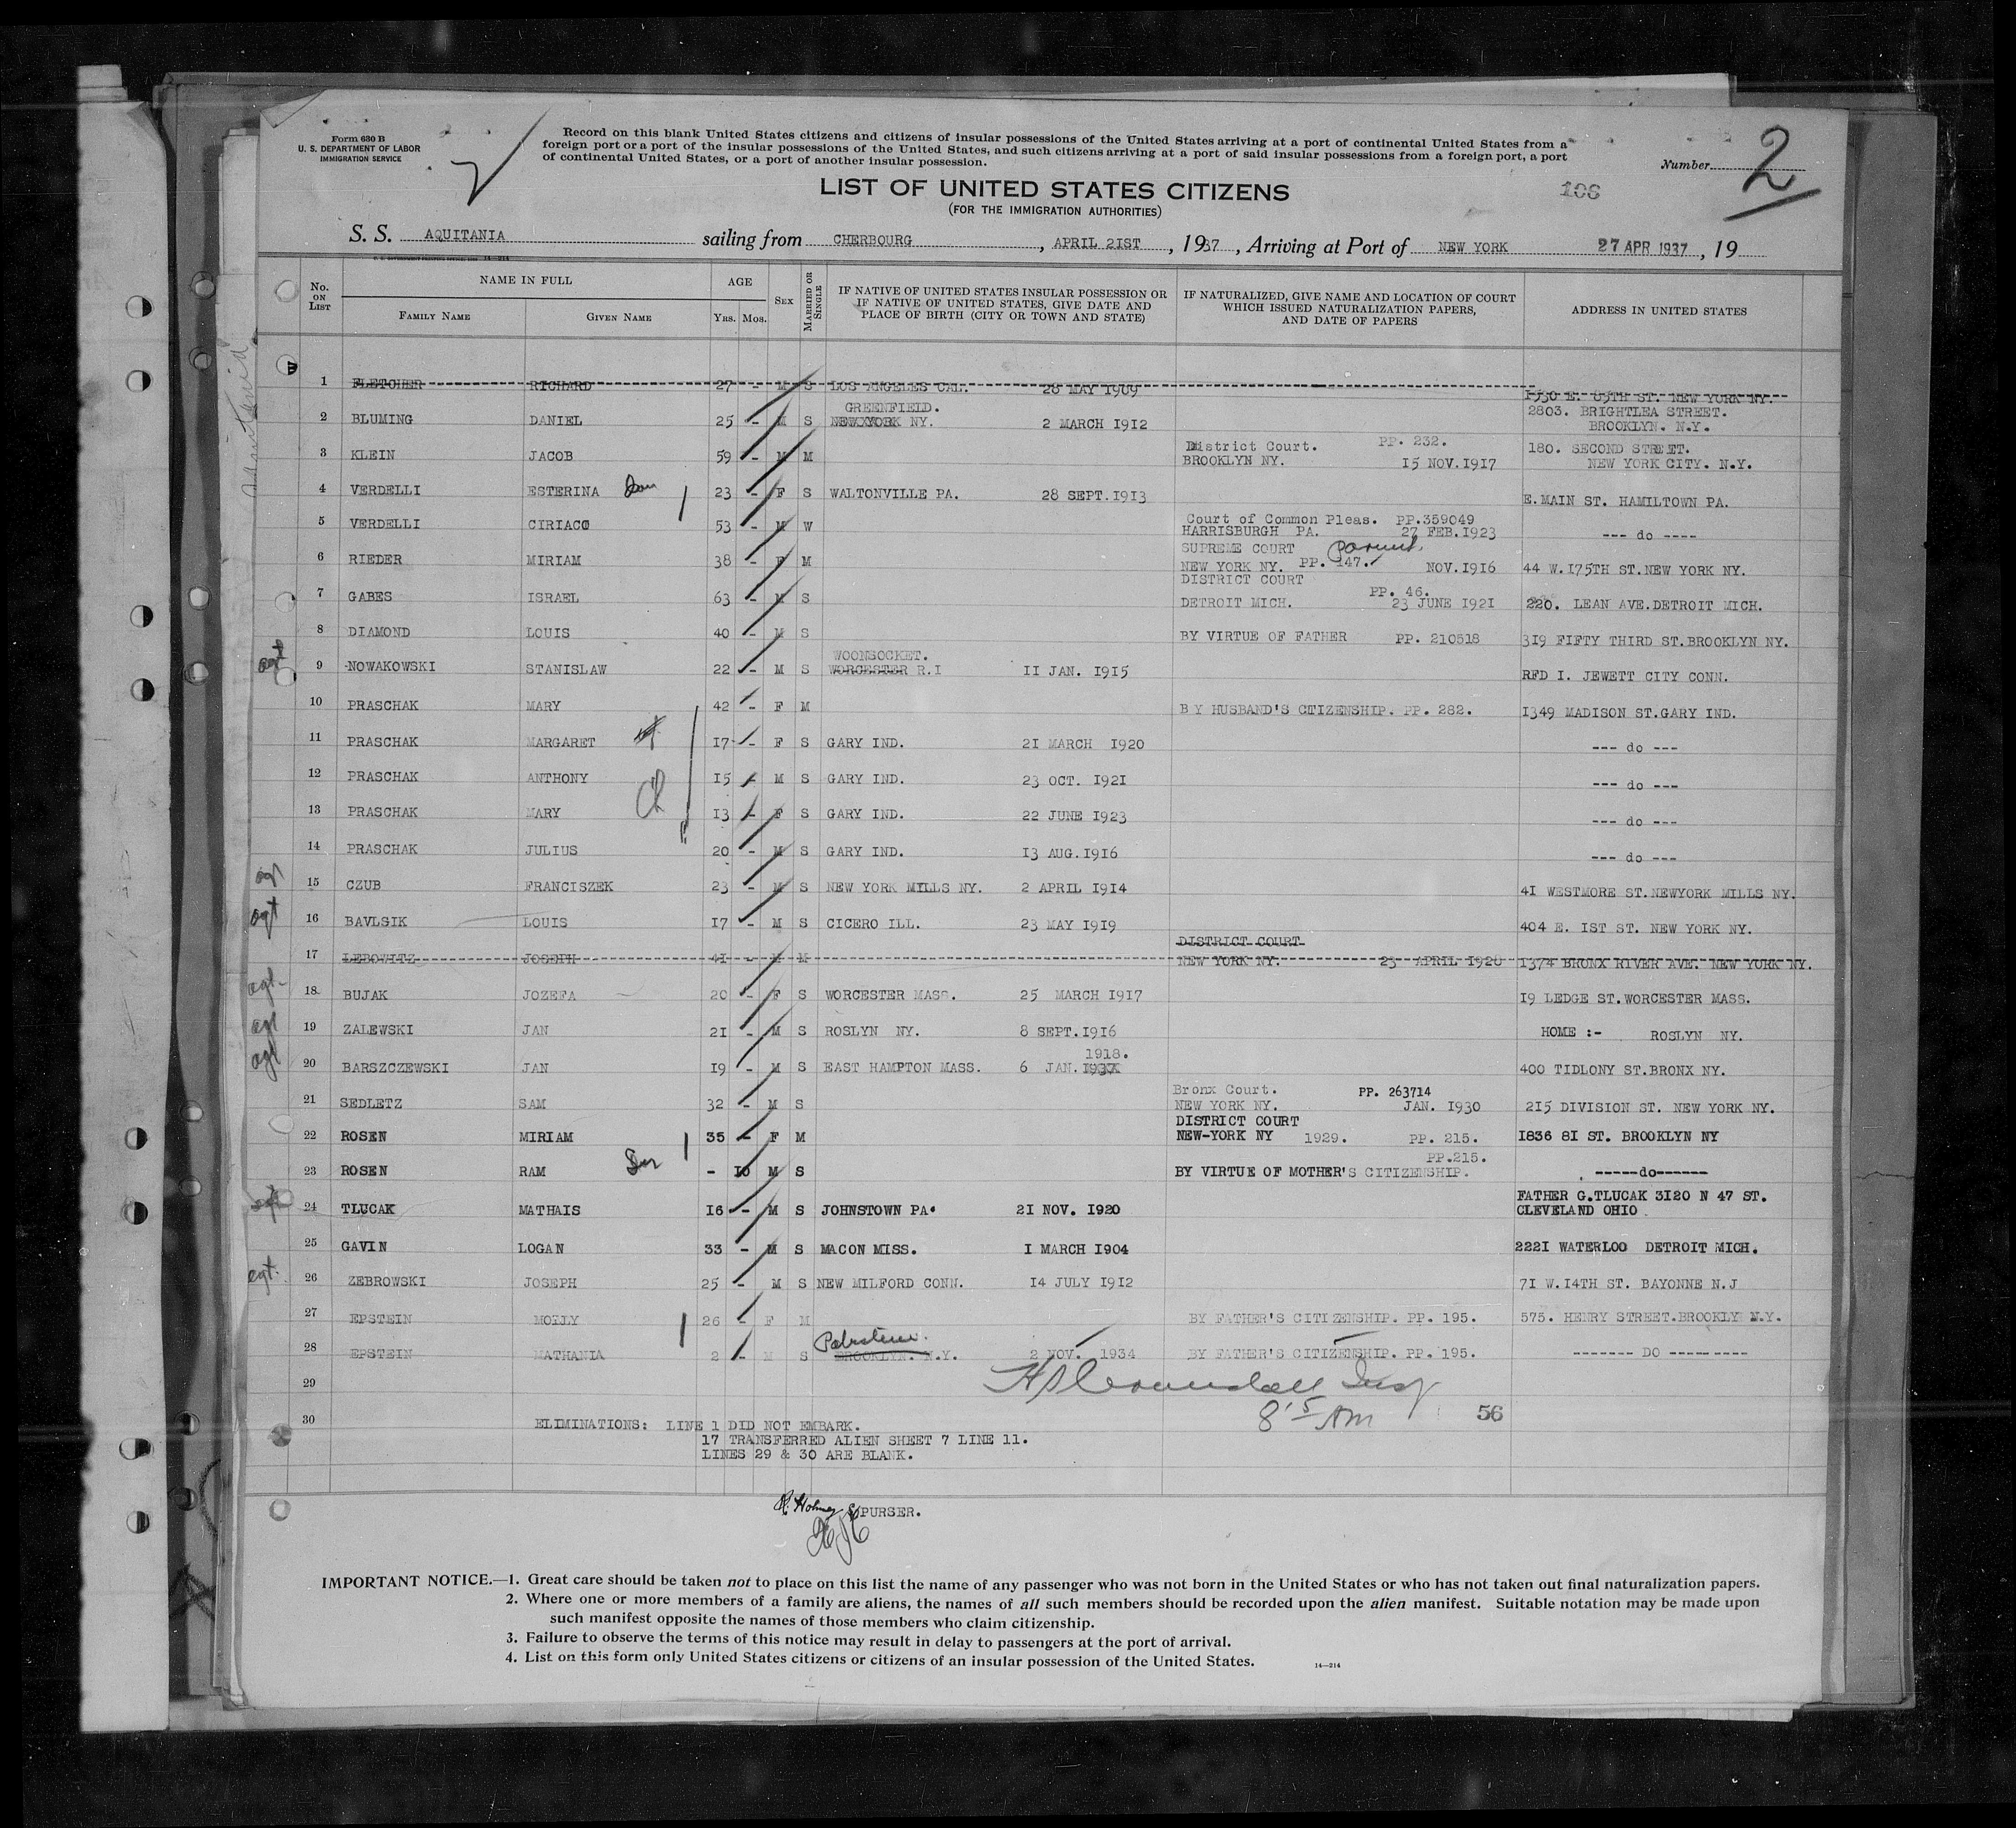 Form 630 B
U. S. DEPARTMENT OF LABOR
IMMIGRATION SERVICE
Record on this blank United States citizens and citizens of insular possessions of the United States arriving at a port of continental United States from a
foreign port or a port of the insular possessions of the United States, and such citizens arriving at a port of said insular possessions from a foreign port, a port
of continental United States, or a port of another insular possession.
Number 2
LIST OF UNITED STATES CITIZENS
106
(FOR THE IMMIGRATION AUTHORITIES)
S. S. AQUITANIA sailing from CHERBOURG, APRIL 21ST, 1937, Arriving at Port of NEW YORK 27 APR 1937, 19
No. ON LIST
NAME IN FULL
FAMILY NAME GIVEN NAME
AGE
Yrs. Mos.
SEX
MARRIED OR SINGLE
IF NATIVE OF UNITED STATES INSULAR POSSESSION OR
IF NATIVE OF UNITED STATES, GIVE DATE AND
PLACE OF BIRTH (CITY OR TOWN AND STATE)
IF NATURALIZED, GIVE NAME AND LOCATION OF COURT
WHICH ISSUED NATURALIZATION PAPERS,
AND DATE OF PAPERS
ADDRESS IN UNITED STATES
1 FLETCHER RICHARD 27 - M S LOS ANGELES CAL. 28 MAY 1909 1530 E. 85TH ST. NEW YORK NY.
GREENFIELD. 2803. BRIGHTLEA STREET.
2 BLUMING DANIEL 25 - M S NEWYORK NY. 2 MARCH 1912 BROOKLYN. N.Y.
District Court. PP. 232. 180. SECOND STREET.
3 KLEIN JACOB 59 - M M BROOKLYN NY. 15 NOV.1917 NEW YORK CITY. N.Y.
4 VERDELLI ESTERINA 23 - F S WALTONVILLE PA. 28 SEPT.1913 E.MAIN ST. HAMILTOWN PA.
Court of Common Pleas. PP.359049
5 VERDELLI CIRIACO 53 - M W HARRISBURGH PA. 27 FEB.1923 --- do ----
SUPREME COURT
6 RIEDER MIRIAM 38 - F M NEW YORK NY. PP. 147. NOV.1916 44 W.175TH ST.NEW YORK NY.
DISTRICT COURT PP. 46.
7 GABES ISRAEL 63 - M S DETROIT MICH. 23 JUNE 1921 220. LEAN AVE.DETROIT MICH.
8 DIAMOND LOUIS 40 - M S BY VIRTUE OF FATHER PP. 210518 319 FIFTY THIRD ST.BROOKLYN NY.
WOONSOCKET.
9 NOWAKOWSKI STANISLAW 22 - M S WORCESTER R.I 11 JAN. 1915 RFD 1. JEWETT CITY CONN.
10 PRASCHAK MARY 42 - F M BY HUSBAND'S CTIZENSHIP. PP. 282. 1349 MADISON ST.GARY IND.
11 PRASCHAK MARGARET 17 - F S GARY IND. 21 MARCH 1920 --- do ---
12 PRASCHAK ANTHONY 15 - M S GARY IND. 23 OCT. 1921 --- do ---
13 PRASCHAK MARY 13 - F S GARY IND. 22 JUNE 1923 --- do ---
14 PRASCHAK JULIUS 20 - M S GARY IND. 13 AUG.1916 --- do ---
15 CZUB FRANCISZEK 23 - M S NEW YORK MILLS NY. 2 APRIL 1914 41 WESTMORE ST.NEWYORK MILLS NY.
agt 16 BAVLSIK LOUIS 17 - M S CICERO ILL. 23 MAY 1919 404 E. 1ST ST. NEW YORK NY.
DISTRICT COURT
17 LEBOWITZ JOSEPH 41 - M M NEW YORK NY. 23 APRIL 1928 1374 BRONX RIVER AVE. NEW YORK NY.
agt 18 BUJAK JOZEFA 20 - F S WORCESTER MASS. 25 MARCH 1917 19 LEDGE ST.WORCESTER MASS.
agt 19 ZALEWSKI JAN 21 - M S ROSLYN NY. 8 SEPT.1916 HOME :- ROSLYN NY.
1918.
agt 20 BARSZCZEWSKI JAN 19 - M S EAST HAMPTON MASS. 6 JAN. 400 TIDLONY ST.BRONX NY.
Bronx Court. PP. 263714
21 SEDLETZ SAM 32 - M S NEW YORK NY. JAN. 1930 215 DIVISION ST. NEW YORK NY.
DISTRICT COURT
22 ROSEN MIRIAM 35 - F M NEW-YORK NY 1929. PP. 215. 1836 81 ST. BROOKLYN NY
PP.215.
23 ROSEN RAM - 10 M S BY VIRTUE OF MOTHER'S CITIZENSHIP. -----do------
FATHER G.TLUCAK 3120 N 47 ST.
24 TLUCAK MATHAIS 16 - M S JOHNSTOWN PA. 21 NOV. 1920 CLEVELAND OHIO.
25 GAVIN LOGAN 33 - M S MACON MISS. 1 MARCH 1904 2221 WATERLOO DETROIT MICH.
agt. 26 ZEBROWSKI JOSEPH 25 - M S NEW MILFORD CONN. 14 JULY 1912 71 W.14TH ST. BAYONNE N.J
27 EPSTEIN MOLLY 26 - F M BY FATHER'S CITIZENSHIP. PP. 195. 575. HENRY STREET.BROOKLY N.Y.
Palestine.
28 EPSTEIN NATHANIA 2 - M S BROOKLYN. N.Y. 2 NOV. 1934 BY FATHER'S CITIZENSHIP. PP. 195. ------- DO ---------
29
8 15 AM 56
30 ELIMINATIONS: LINE 1 DID NOT EMBARK.
17 TRANSFERRED ALIEN SHEET 7 LINE 11.
LINES 29 & 30 ARE BLANK.
PURSER.
IMPORTANT NOTICE.—1. Great care should be taken not to place on this list the name of any passenger who was not born in the United States or who has not taken out final naturalization papers.
2. Where one or more members of a family are aliens, the names of all such members should be recorded upon the alien manifest. Suitable notation may be made upon
such manifest opposite the names of those members who claim citizenship.
3. Failure to observe the terms of this notice may result in delay to passengers at the port of arrival.
4. List on this form only United States citizens or citizens of an insular possession of the United States.
14—214